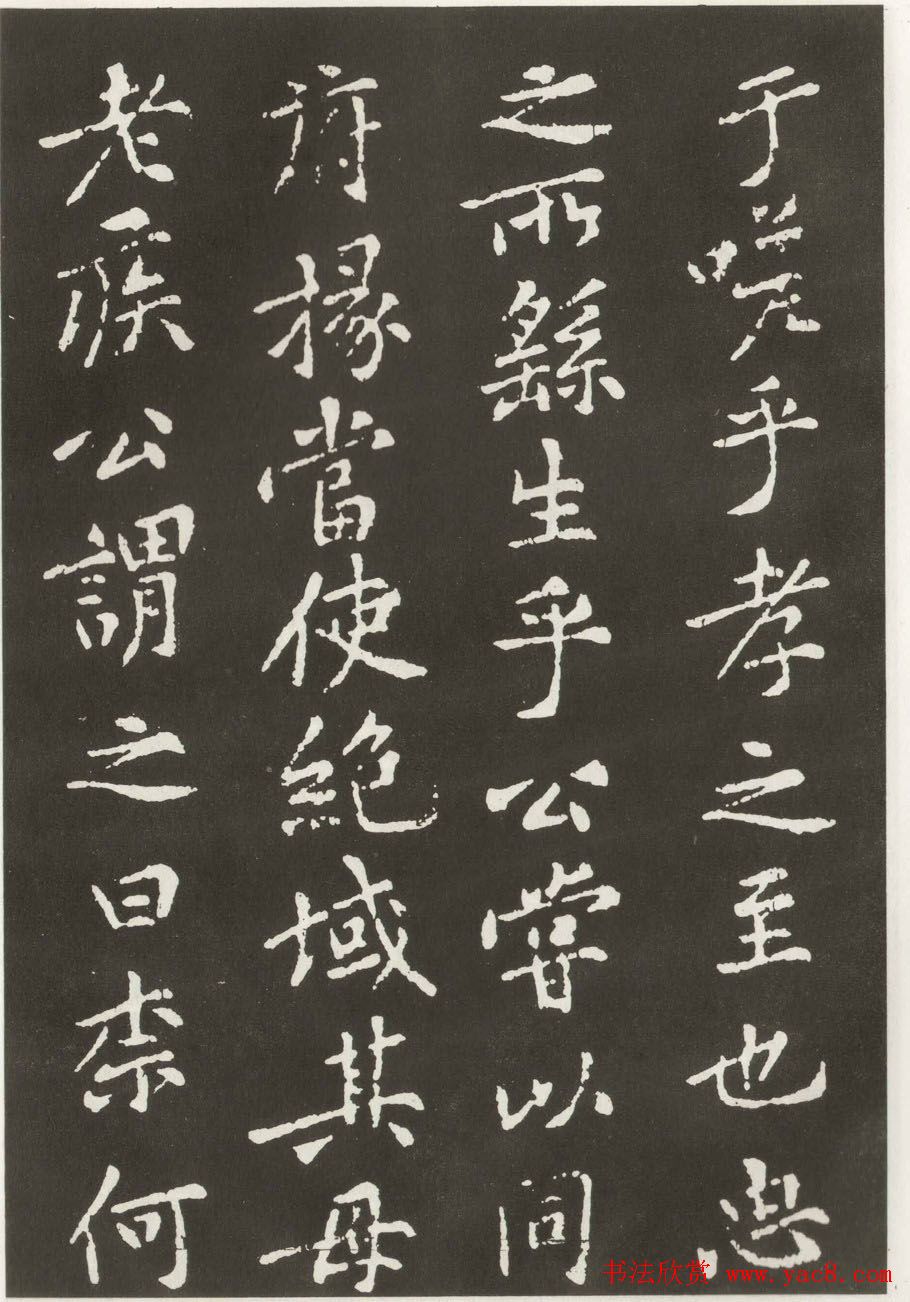 于嗟乎孝之至也忠
之所繇生乎公甞以同
府掾當使絶域其母
老疾公謂之曰柰何
书法欣赏 www.yac8.com